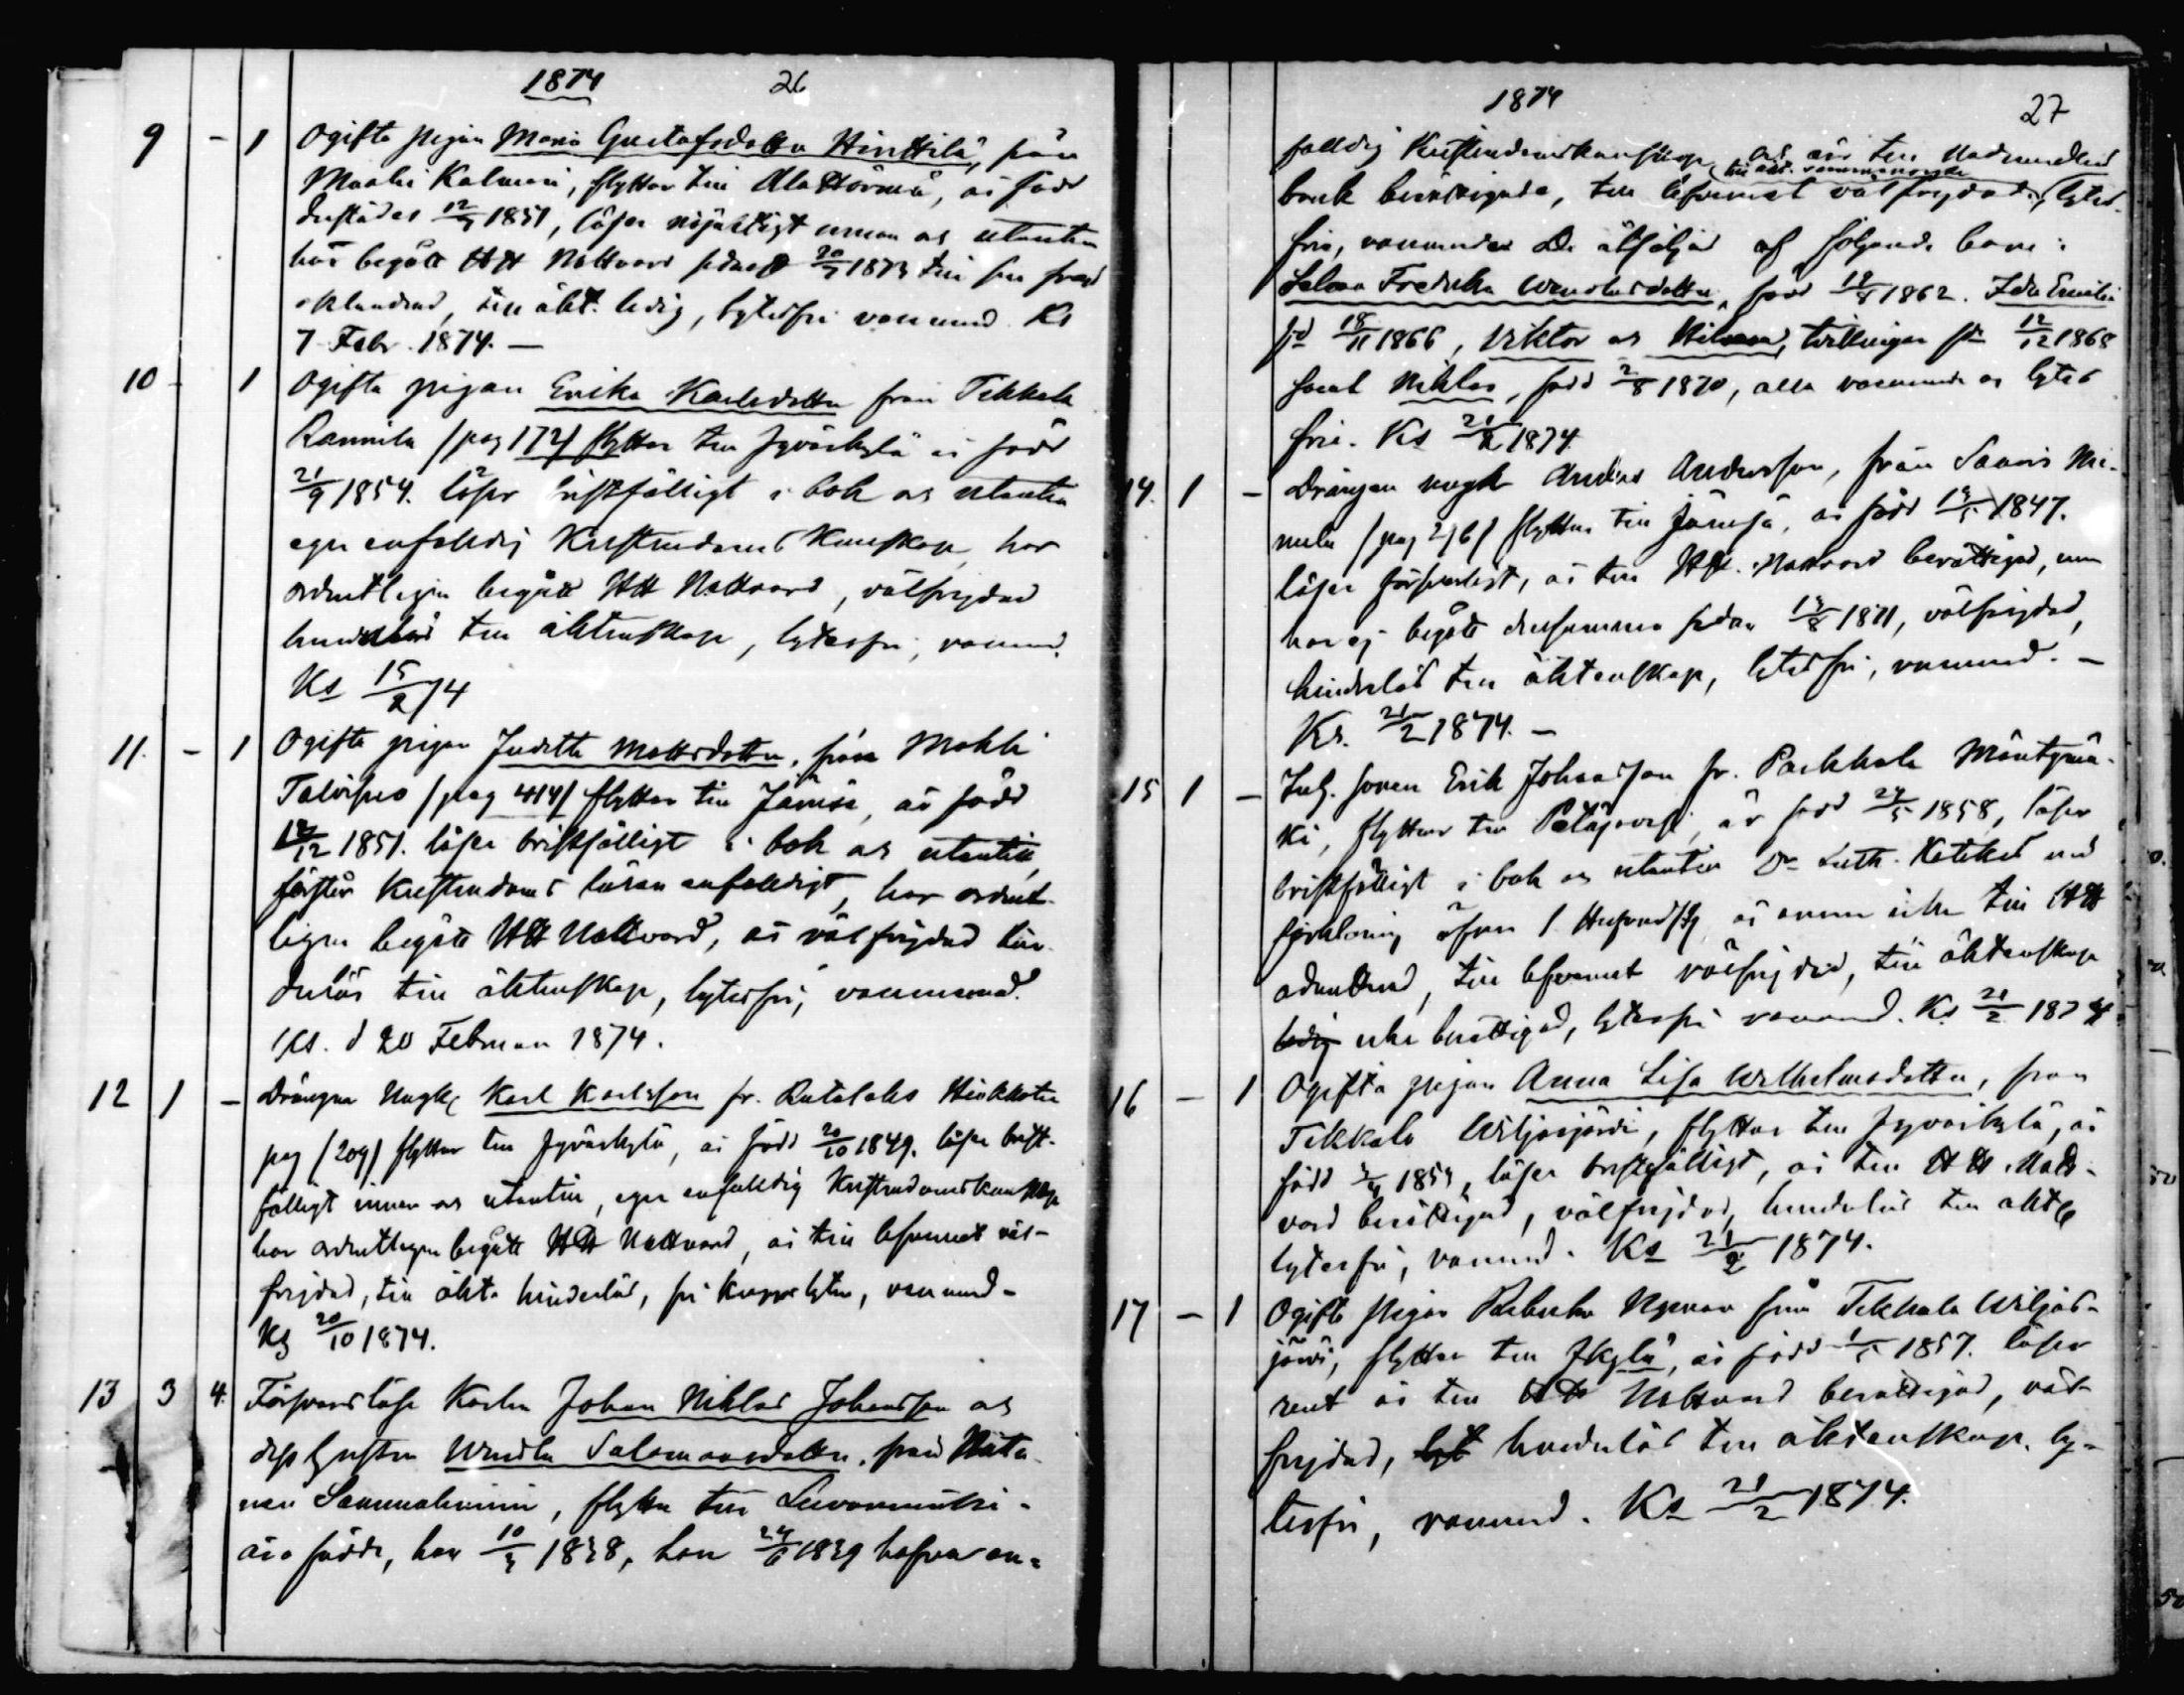 1874 26
9 - 1 Ogifta pigan Maria Gustafsdotter Hinttilä, från
Kalmari, flyttar till Alahärmä, är född
derstädes 12/7 1851, läser nöjaktigt innan och utantill
har begått HH Nattvard sednast 20/7 1873, till sin frejd
oklandrad, till äkt. ledig, lytesfri vaccinerad. Ks
7 Febr. 1874. —
10 - 1 Ogifta pigan Erika Karlsdotter från Tekkala
Rannila /pag 172/ flyttar till Jyväskylä är född
21/9 1854. läser bristfälligt i bok och utantill
eger enfaldig Kristendoms Kunskap, har
ordentligen begått HH Nattvard, välfrejdad
hinderlös till äktenskap, lytesfri, vaccined.
Ks 15/2 74
11. - 1 Ogifta pigan Juditha Mattsdotter, från Mahli
Talvipes /pag 414/ flyttar till Jämsä, är född
12/12 1851. läser bristfälligt i bok och utantill,
förstår Kristendoms läran enfaldigt, har ordent-
ligen begått HH Nattvard, är välfrejdad hin-
derlös till äktenskap, lytesfri, vaccinerad.
Ks. d 20 Februari 1874.
12 1 - Drängen Ynglg Karl Karlsson fr. Rutalaks
pag /209/ flyttar till Jyväskylä, är född 20/10 1849. läser brist-
fälligt innan och utantill, eger enfaldig Kristendomskunskap
har ordentligen begått HH Nattvard, är till lefvernet väl-
frejdad, till äkta hinderlös, fri kroppslyten, vaccined-
Ks 20/10 1874.
13 3 4. Försvarslöse Karlen Johan Niklas Johansson och
dess hustru Wendla Salomonsdotter, från
nen Sammalniemi, flytta till Leivonmäki-
äro födde, han 10/3 1838, hon 24/6 1839 hafva en-
1874 27
faldig Kristendomskunskap, och äro till Nadmedlens
bruk berättigade, till lefvernet välfrejdade, lytes-
fria, vaccinerade. De åtföljas af följande barn:
Selma Fredrika Wendlasdotter, född 18/5 1862. Ida Emilia
fd 18/11 1866, Viktor och Hilma, tvillingar fdd 12/12 1868
samt Niklas, född 2/8 1870, alla vaccinerade och lytes
fria. Ks 21/2 1874.
14. 1 - Drängen yngln Anders Andersson, från Saaris
/pag 276/ flyttar till Jämsä, är född 1847.
läser försvarligt, är till HH. Nattvard berättigad, men
har ej begått densamma sedan 13/8 1871, välfrejdad,
hinderlös till äktenskap, lytesfri, vaccined. —
Ks. 21/2 1874. —
15 1 - Inh. sonen Erik Johansson fr. Parkkola Mäntymä-
ki, flyttar till Petäjävesi, är född 24/5 1858, läser
bristfälligt i bok och utantill Dr Luth. Kateches med
förklaring öfver 1 Hufvudst. är ännu icke till HH
admitterad, till lefvernet välfrejdad, till äktenskap
ledig icke berättigad, lytesfri vaccined. Ks 21/2 1874
16 - 1 Ogifta pigan Anna Lisa Wilhelmsdotter, från
Tekkala Wiljasjärvi, flyttar till Jyväskylä, är
född 1853, läser bristfälligt, är till HH. Natt-
vard berättigad, välfrejdad, hinderlös till äktsk
lytesfri, vaccined. Ks 21/2 1874.
17 - 1 Ogifta pigan Rebecka Nyman från Tekkala Wiljas-
järvi, flyttar till Jkylä, är född 1857. läser
rent är till HH Nattvard berättigad, väl-
frejdad, lyt hinderlös till äktenskap. ly-
tesfri, vaccined. Ks 21/2 1874.